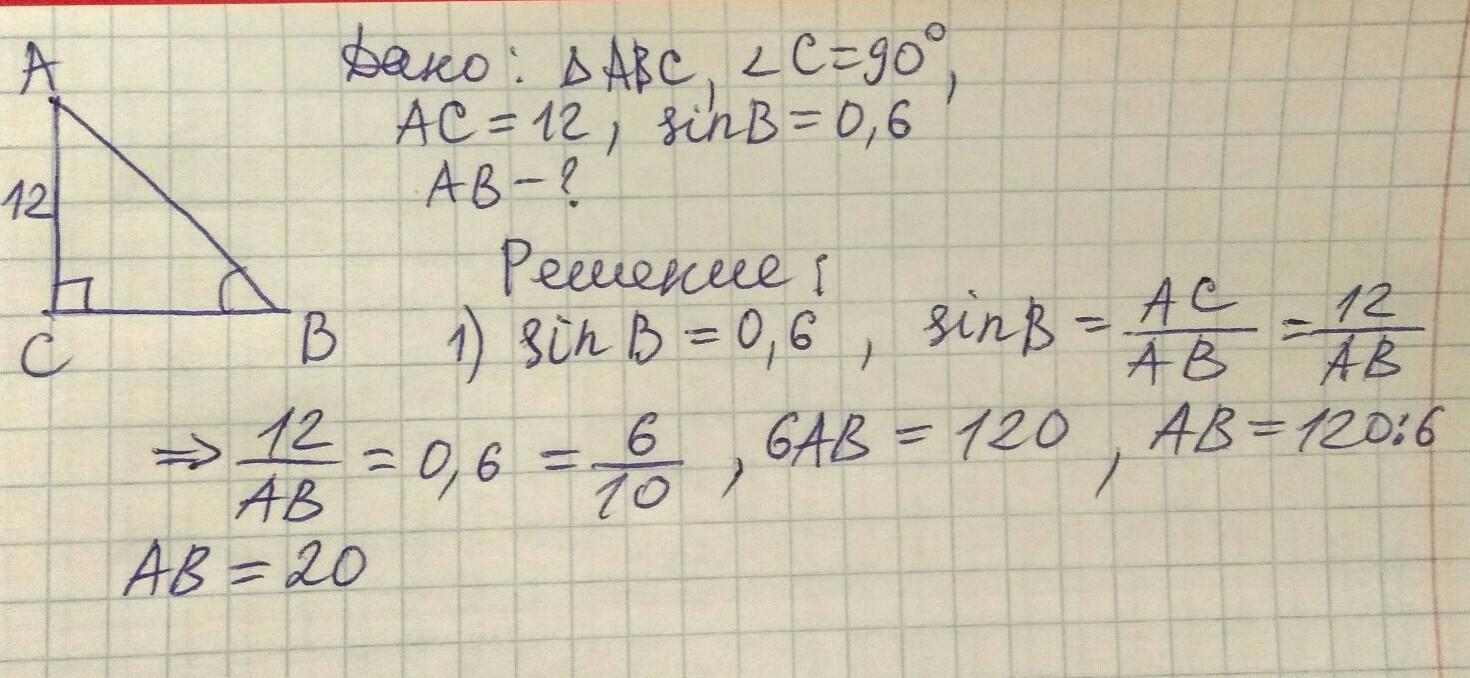 A
12
C
B
Дано: △ABC, ∠C=90°,
AC = 12, sinB = 0,6
AB – ?
Решение:
1) sin B = 0,6 , sinB = AC/AB = 12/AB
⇒ 12/AB = 0,6 = 6/10 , 6AB = 120 , AB = 120:6
AB = 20